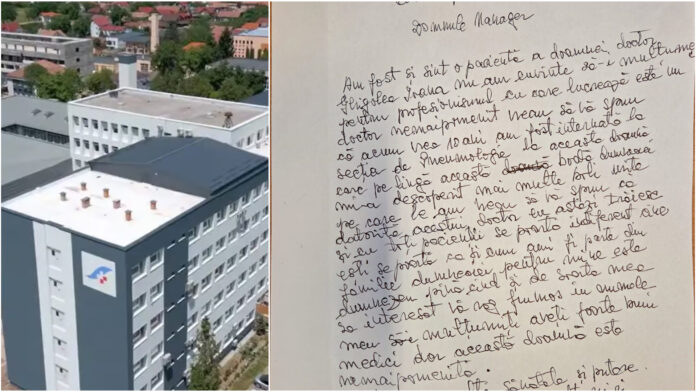 Domnule Manager
Am fost și sînt o pacientă a doamnei doctor
Ghigolea Ioana nu am cuvinte să-i mulțumesc
pentru profesionizmul cu care lucrează este un
doctor nemaipomenit vreau să vă spun
că acum vreo 10 ani am fost internată la
secția de Pneumologie la această doamnă
care pe lîngă această boală dumneaei
mi-a descoperit mai multe boli
pe care le am vreau să vă spun că
datorită acestui doctor eu astăzi trăiesc
și cu toți pacienții se poartă indiferent cine
ești se poartă ca și cum ai fi parte din
familia dumneaei pentru mine este
dumnezeu pînă cînd și de soarta mea
sa interesat vă rog frumos în numele
meu să-i mulțumiți aveți foarte buni
medici dar această doamnă este
nemaipomenită.
sănătate și putere.